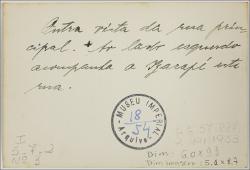 Outra vista da rua prin-
cipal. Ao lado esquerdo
acompanha o Igarapé esta
rua.
MUSEU IMPERIAL
18/54
Arquivo
I
5-7-2
Nº 3
Dim: 6.0x9.3
Dim imagem: 5.1x8.7